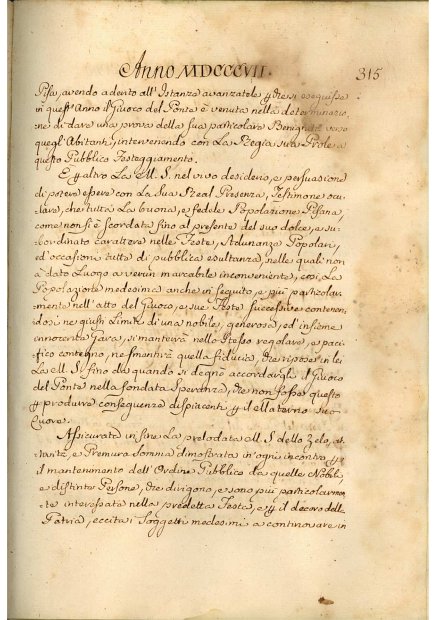 Anno MDCCCVII.
315
Pisa, avendo aderito all'Istanze avanzatele che si eseguisse
in quest'Anno il Giuoco del Ponte è venuta nella determinazio-
ne di dare una prova della sua particolare Benignità verso
quegl'Abitanti, intervenendo con La Regia Sua Prole a
questo Pubblico Festeggiamento.
E altro La M. S. nel vivo desiderio, e persuasione
di potere essere con La Sua Real Presenza, Testimone ocu-
lare, che tutta La buona, e fedele Popolazione Pisana,
come non si è scordata fino al presente del suo dolce, e su-
bordinato carattere nelle Feste, Adunanze Popolari,
ed'occasioni tutte di pubblica esultanza, nelle quali non
à dato Luogo a verun marcabile inconveniente, così, La
Popolazione medesima anche in seguito, e più particolar-
mente nell'atto del Giuoco, e sue Feste successive contenen-
dosi ne giusti Limiti di una nobile, generosa, ed'insieme
innocente Gara, si manterrà nello stesso regolare, e paci-
fico contegno, ne smentirà quella fiducia, che ripose in lei
La M. S. fino da quando si degnò accordargli il Giuoco
del Ponte nella fondata Speranza, che non fosse questo
produrre conseguenze dispiacenti il Materno suo
Cuore.
Assicurata infine La prelodata M. S. dello Zelo, at-
tività, e Premura somma dimostrata in ogni incontro
il mantenimento dell'Ordine Pubblico da quelle Nobili,
e distinte Persone, che dirigono, e sono più particolarmen-
te interessate nella predetta Festa, e il decoro della
Patria, eccita i Soggetti medesimi a continovare in